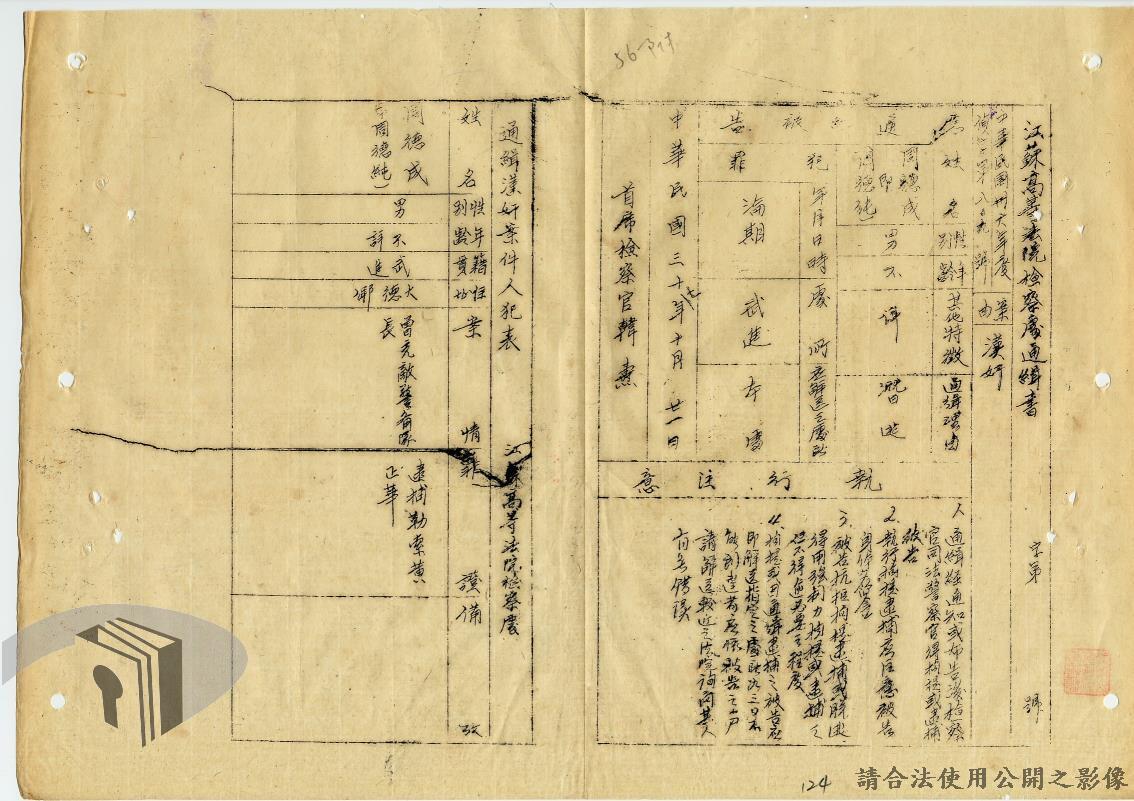 56附
江蘇高等法院檢察處通緝書
字第 號
中華民國卅六年度
案由
漢奸
姓名
性別
年齡
其他特徵
通緝理由
周德成
即
周德純
男
不詳
潛逃
通
被
告
犯罪
年月日時
處所
應解送之處所
淪期
武進
本處
中華民國三十六年十月廿一日
首席檢察官韓燾
執行注意
1. 通緝經通知或布告後檢察
官司法警察官得拘提或逮捕
被告
2. 執行拘提逮捕應注意被告
身體名譽
3. 被告抗拒拘提逮捕或脫逃
得用強制力拘提或逮捕之
但不得逾必要之程度
4. 拘提或因通緝逮捕之被告應
即解送指定之處所如三日不
能到達者應依被告之
請解送較近之法院詢問其人
有無錯誤
通緝漢奸案件人犯表
江蘇高等法院檢察處
姓名
性別
年齡
籍貫
住址
案情
罪證
備攷
周德成
周德純
男
不詳
武進
大德
曾充敵警備隊
長
逮捕勒索黃
正華
124
請合法使用公開之影像